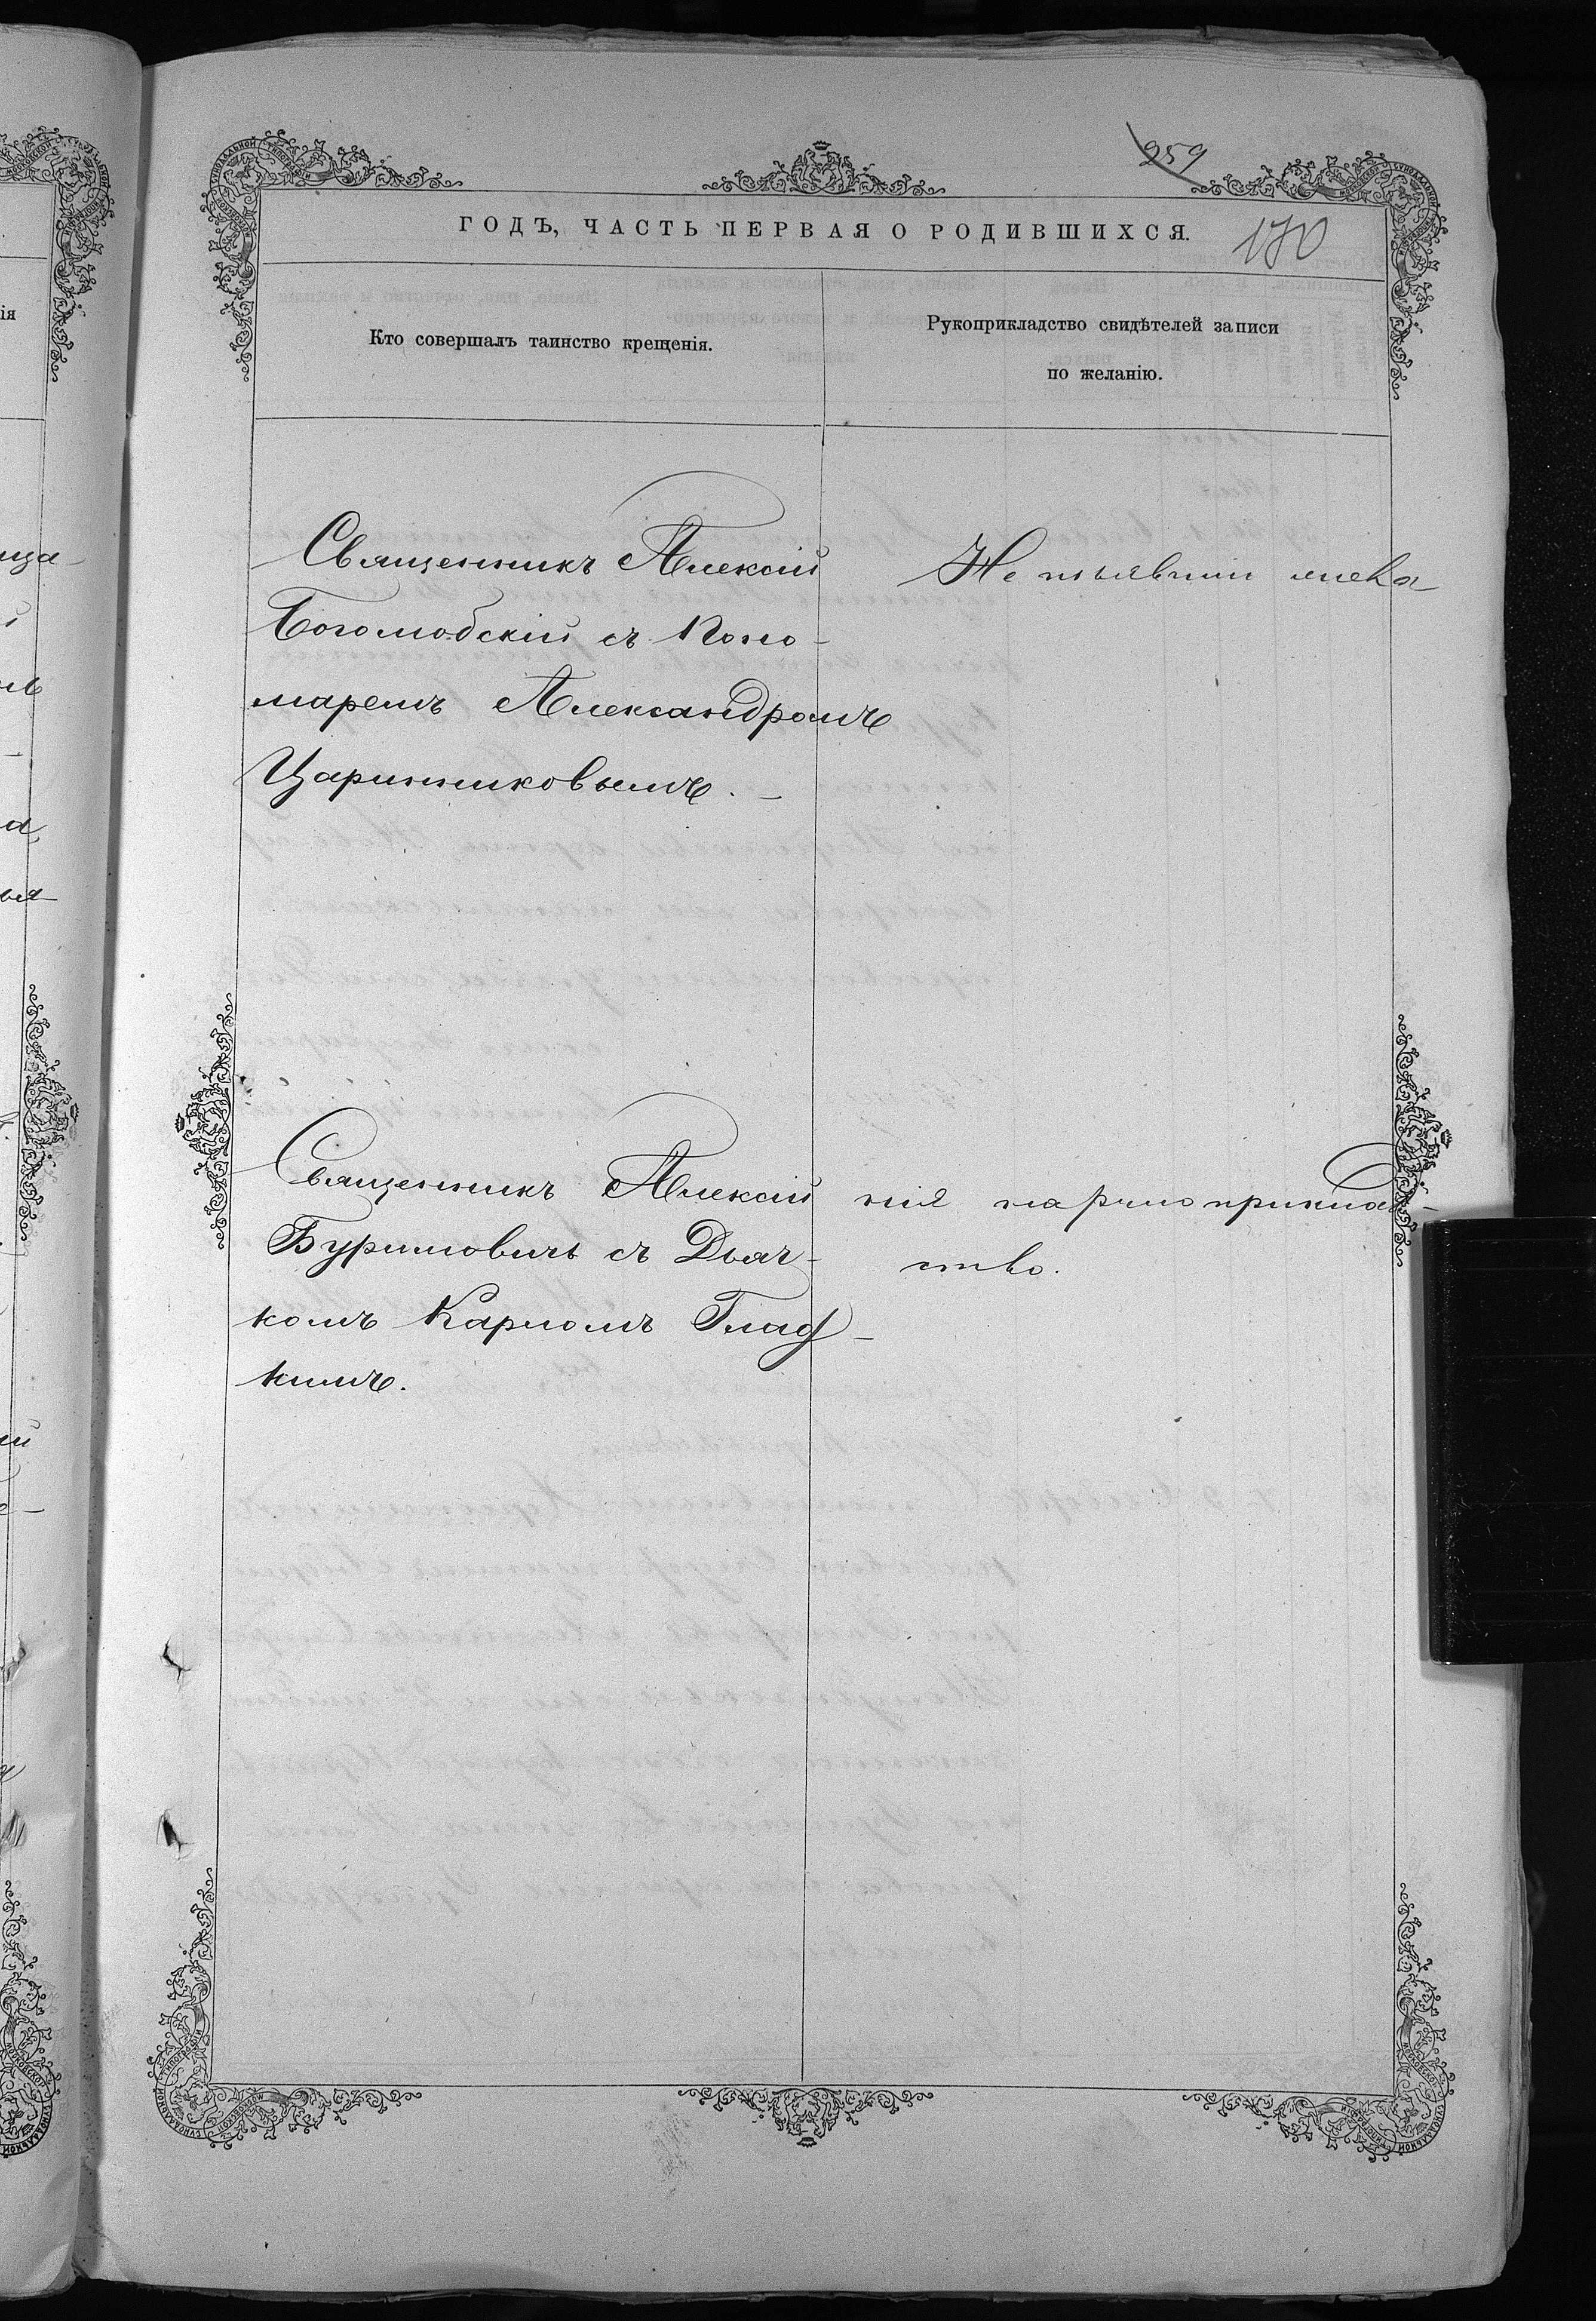 259
ГОДЪ, ЧАСТЬ ПЕРВАЯ О РОДИВШИХСЯ.
170
Кто совершалъ таинство крещенія.
Рукоприкладство свидѣтелей записи
по желанію.
Священникъ Алексій
Боголюбскій съ Поно-
маремъ Александромъ
Царинниковымъ.
Не изъявили жела
Священникъ Алексій
Буримовичъ съ Дьяч-
комъ Карпомъ Глад-
кимъ.
нія на рукоприклад-
ство.